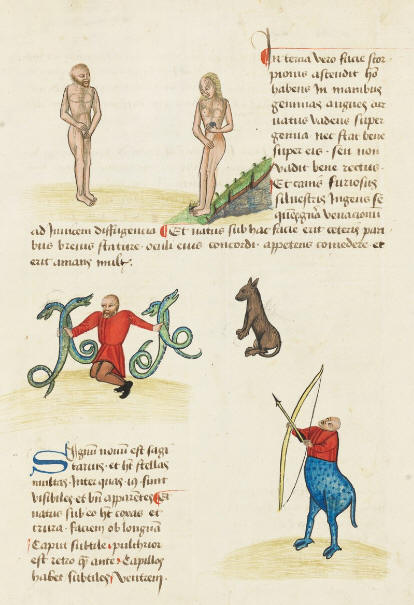 In tercia vero facie scor
pionis ascendit ho
habens in manibus
geminas angues cur
natus vadens super
genua nec stat bene
super eis · seu non
vadit bene rectus ·
Et canis furiosus
silvestris Ingens se
venacionu
ad Invicem Et natus sub hac facie erit ceteris par
bus brevis stature · oculi eius concordi · appetens comedere · et
erit amans mult ·
Signum nonum est sagi
tarius · et ht stellas
multas · Inter quas sunt
visibiles et bn apparentes Et
natus sub eo ht coxas et
crura · faciem oblongam
Caput subtile · pulchrior
est retro q ante · Capillos
habet subtiles ventrem ·